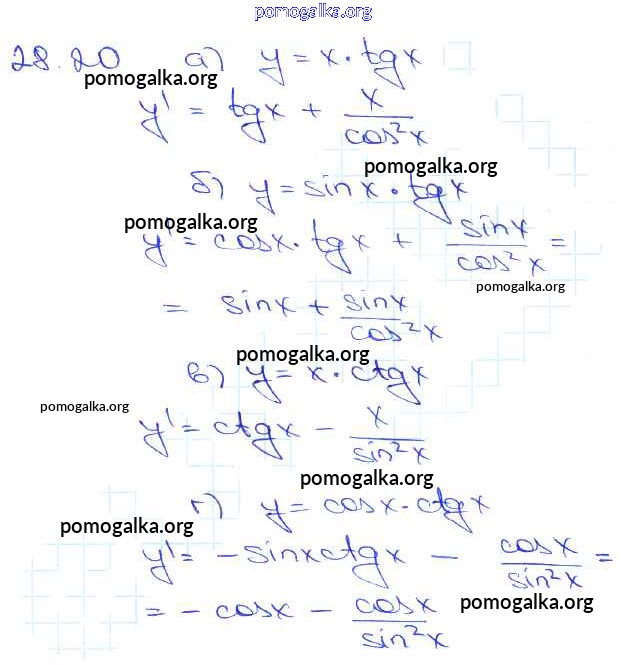 pomogalka.org
28.20 а) y = x · tgx
pomogalka.org
y' = tgx + x/cos²x
pomogalka.org
б) y = sinx · tgx
pomogalka.org
y' = cosx · tgx + sinx/cos²x =
pomogalka.org
= sinx + sinx/cos²x
pomogalka.org
в) y = x · ctgx
pomogalka.org
y' = ctgx − x/sin²x
pomogalka.org
г) y = cosx · ctgx
pomogalka.org
y' = −sinxctgx − cosx/sin²x =
pomogalka.org
= −cosx − cosx/sin²x